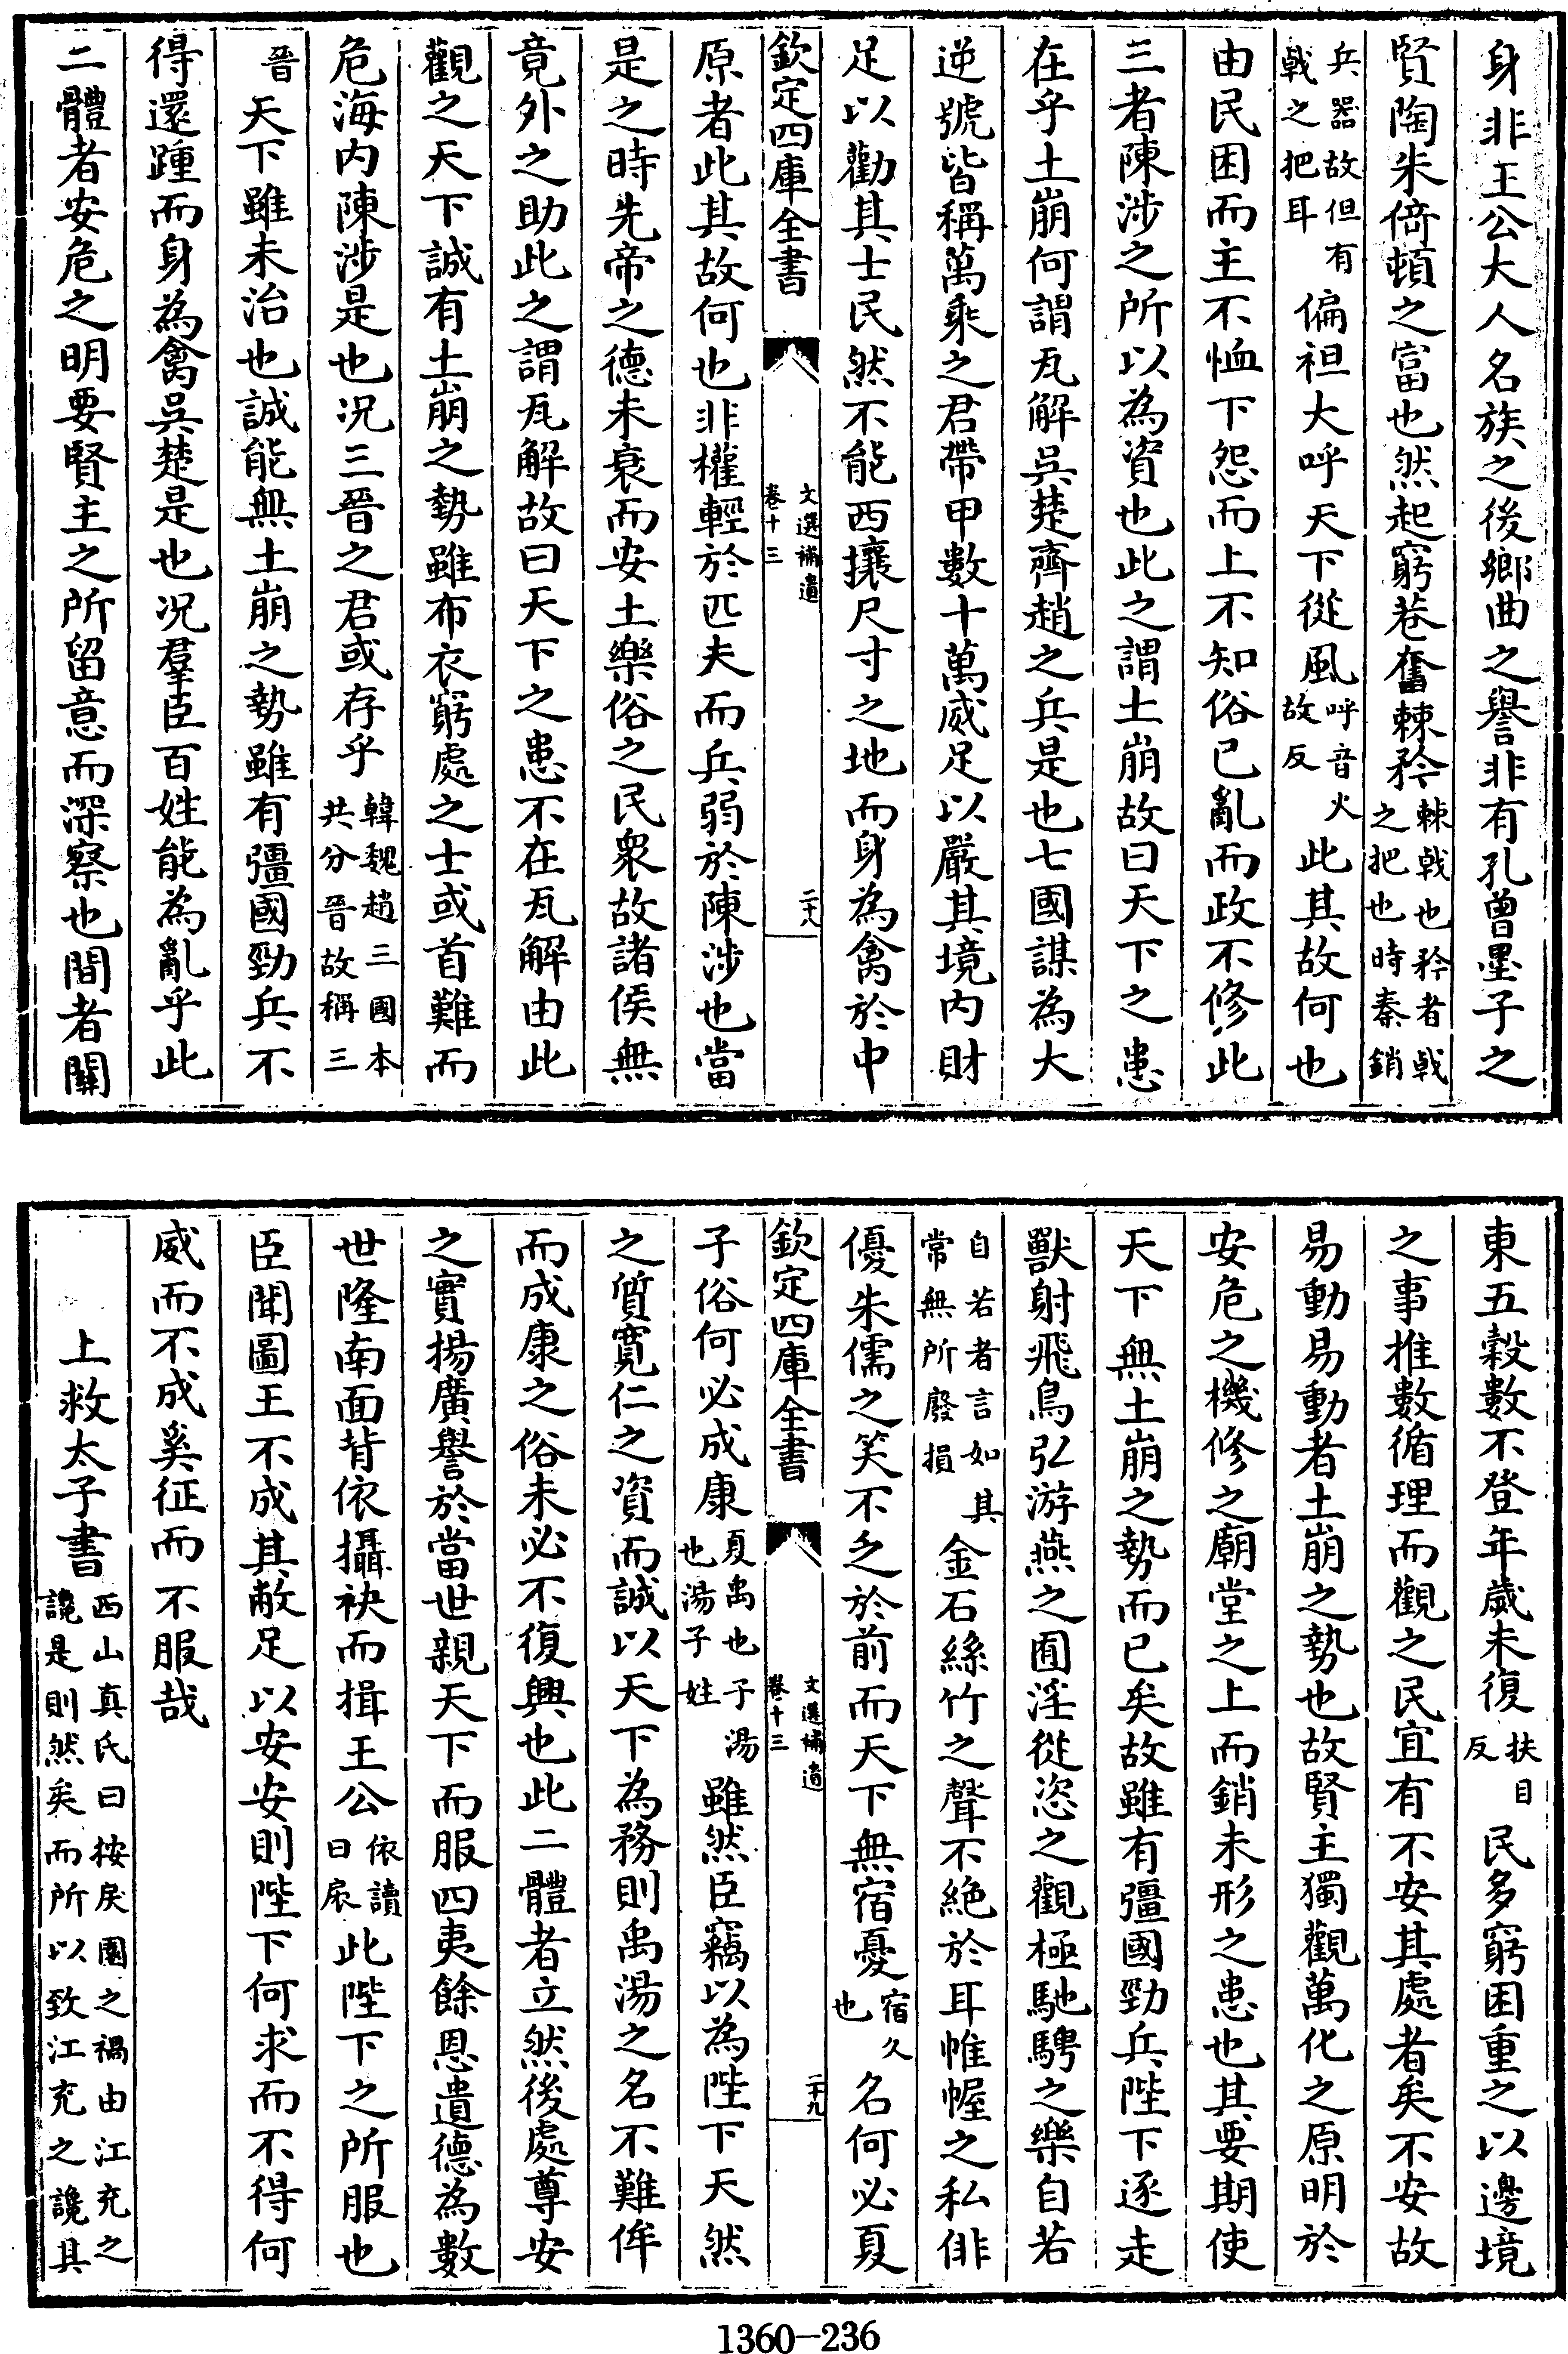 身非王公大人名族之後鄉曲之譽非有孔曾墨子之
賢陶朱倚頓之富也然起窮巷奮棘矜棘戟也矜者戟之把也時秦銷
兵器故但有戟之把耳偏袒大呼天下從風呼音火故反此其故何也
由民困而主不恤下怨而上不知俗已亂而政不修此
三者陳涉之所以為資也此之謂土崩故曰天下之患
在乎土崩何謂瓦解吳楚齊趙之兵是也七國謀為大
逆號皆稱萬乘之君帶甲數十萬威足以嚴其境内財
足以勸其士民然不能西攘尺寸之地而身為禽於中
欽定四庫全書
文選補遺
卷十三
二十八
原者此其故何也非權輕於匹夫而兵弱於陳涉也當
是之時先帝之德未衰而安土樂俗之民衆故諸侯無
竟外之助此之謂瓦解故曰天下之患不在瓦解由此
觀之天下誠有土崩之勢雖布衣窮處之士或首難而
危海内陳涉是也况三晉之君或存乎韓魏趙三國本共分晉故稱三
晉天下雖未治也誠能無土崩之勢雖有彊國勁兵不
得還踵而身為禽吳楚是也况羣臣百姓能為亂乎此
二體者安危之明要賢主之所留意而深察也間者關
東五穀數不登年歲未復扶目反民多窮困重之以邊境
之事推數循理而觀之民宜有不安其處者矣不安故
易動易動者土崩之勢也故賢主獨觀萬化之原明於
安危之機修之廟堂之上而銷未形之患也其要期使
天下無土崩之勢而已矣故雖有彊國勁兵陛下逐走
獸射飛鳥弘游燕之囿淫從恣之觀極馳騁之樂自若
自若者言如其常無所廢損金石絲竹之聲不絶於耳帷幄之私俳
優朱儒之笑不乏於前而天下無宿憂宿久也名何必夏
欽定四庫全書
文選補遺
卷十三
二十九
子俗何必成康夏禹也子湯也湯子姓雖然臣竊以為陛下天然
之質寛仁之資而誠以天下為務則禹湯之名不難侔
而成康之俗未必不復興也此二體者立然後處尊安
之實揚廣譽於當世親天下而服四夷餘恩遺德為數
世隆南面背依攝袂而揖王公依讀曰扆此陛下之所服也
臣聞圖王不成其敝足以安安則陛下何求而不得何
威而不成奚征而不服哉
上救太子書西山真氏曰按戾園之禍由江充之讒是則然矣而所以致江充之讒其
1360-236